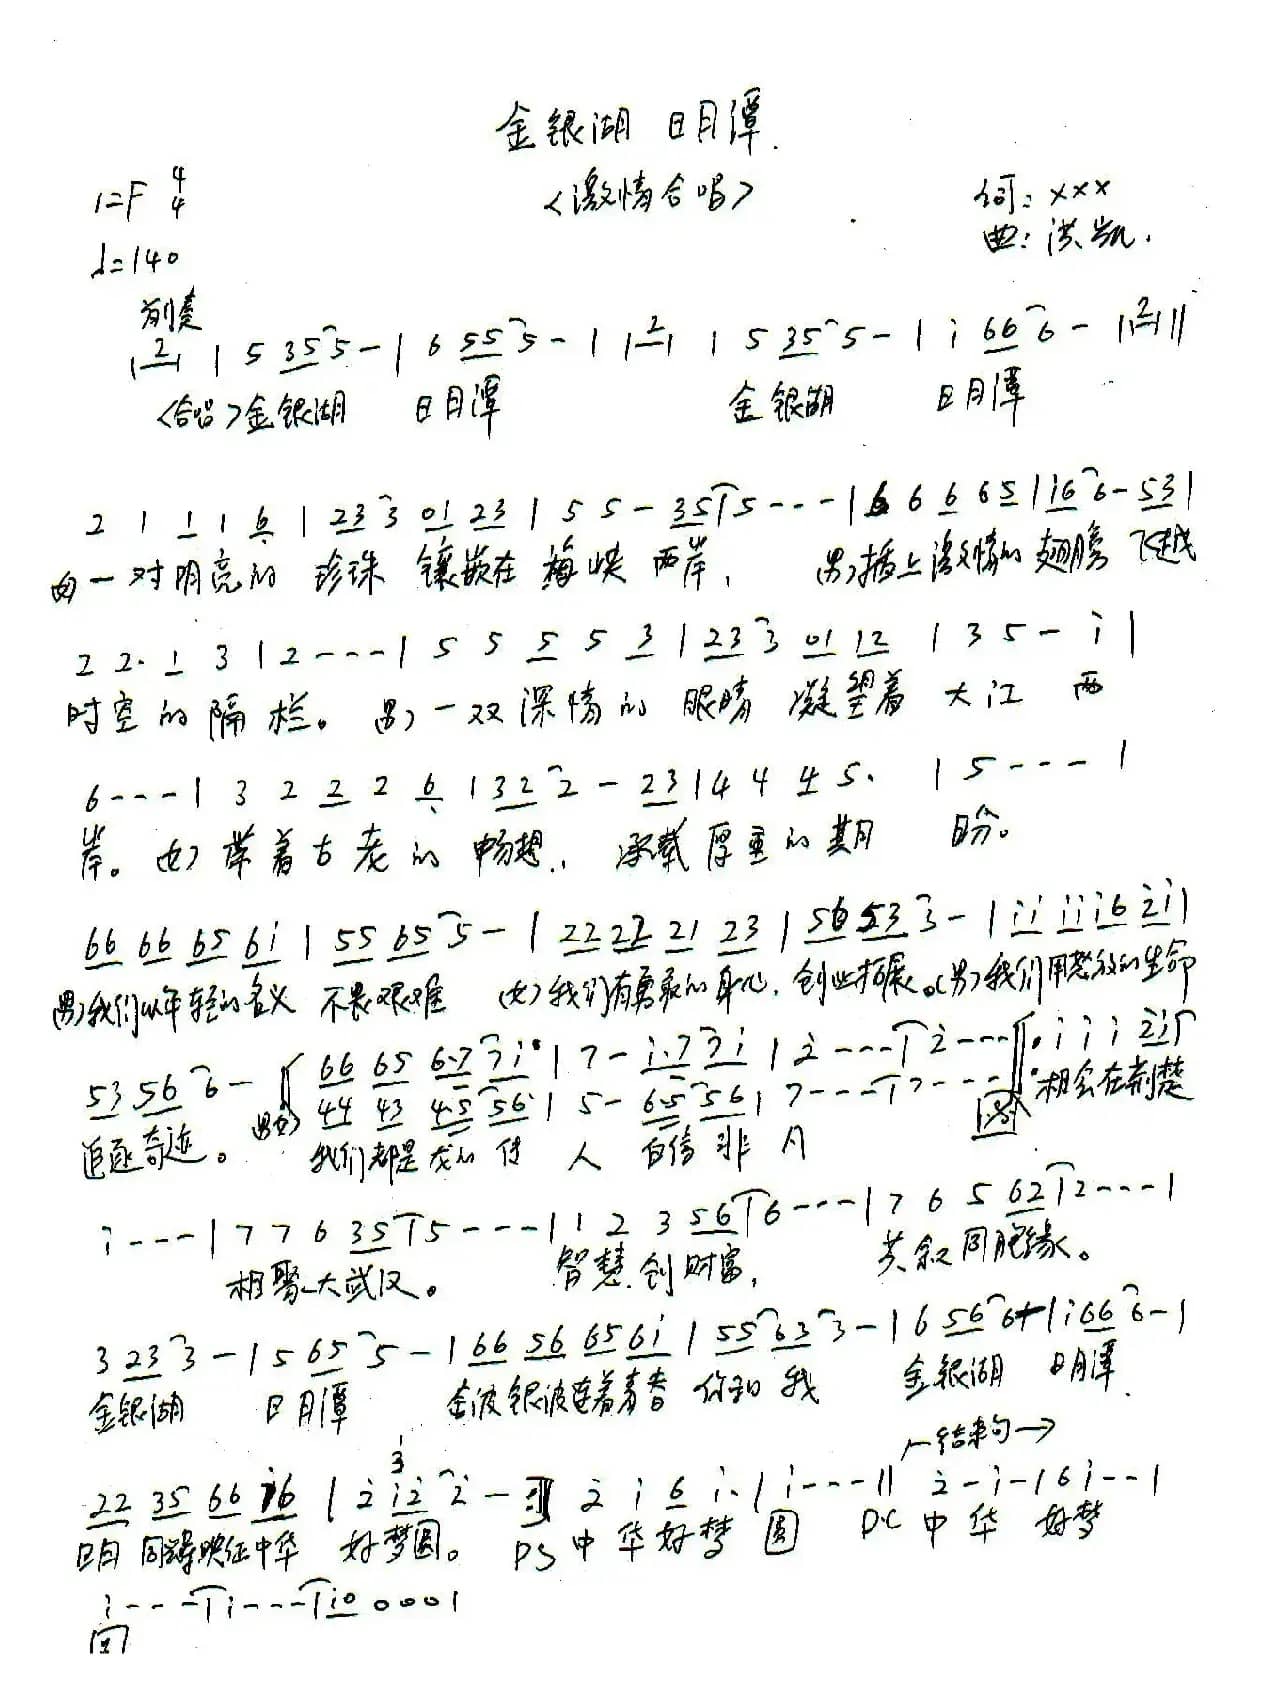 金银湖 日月潭
1=F 4/4 <激情合唱> 词: xxx
♩=140 曲: 洪凯.
前奏
|2| | 5 35 5 - | 6 55 5 - | |2| | 5 35 5 - | i 66 6 - |2||
<合唱>金银湖 日月潭 金银湖 日月潭
2 1 1 1 6 | 23 3 01 23 | 5 5 - 35 | 5 - - - | 6 6 6 6 5 | i6 6 - 53 |
一对明亮的 珍珠 镶嵌在 海峡 两岸, 男)插上激情的 翅膀 飞越
2 2. 1 3 | 2 - - - | 5 5 5 5 3 | 23 3 01 12 | 3 5 - i |
时空的隔栏。 男)一双深情的 眼睛 凝望着 大江 两
6 - - - | 3 2 2 2 6 | 32 2 - 23 | 4 4 4 5. | 5 - - - |
岸。女)带着古老的 畅想, 承载厚重的期 盼。
66 66 65 6i | 55 65 5 - | 22 22 21 23 | 56 53 3 - | ii ii i6 2i |
男)我们以年轻的名义 不畏艰难 (女)我们有勇敢的身心, 创业拓展。(男)我们用豪放的生命
66 65 6.7 7i | 7 - i.7 7i | 2 - - - | 2 - - - i i i 2i
53 56 6 - 44 43 4.5 56 | 5 - 6.5 56 | 7 - - - | 7 - - -
追逐奇迹。 男女) 我们都是龙的传 人 自信 非 凡 相会在荆楚
i - - - | 7 7 6 35 | 5 - - - | 1 2 3 56 | 6 - - - | 7 6 5 62 | 2 - - - |
相聚大武汉。 智慧创财富, 共叙同胞缘。
3 23 3 - | 5 65 5 - | 66 56 65 6i | 55 63 3 - | 6 56 6 | i 66 6 - |
金银湖 日月潭 金波银波连着青春 你和 我 金银湖 日月潭
⊢结束句→
22 35 66 i6 | 2 i2 2 - 2 i 6 i. | i - - - || 2 - i - | 6 i - - |
日月 同辉映征中华 好梦圆。 DS 中华好梦 圆 DC 中 华 好梦
i - - - | i - - - | i0 0 0 0 |
圆